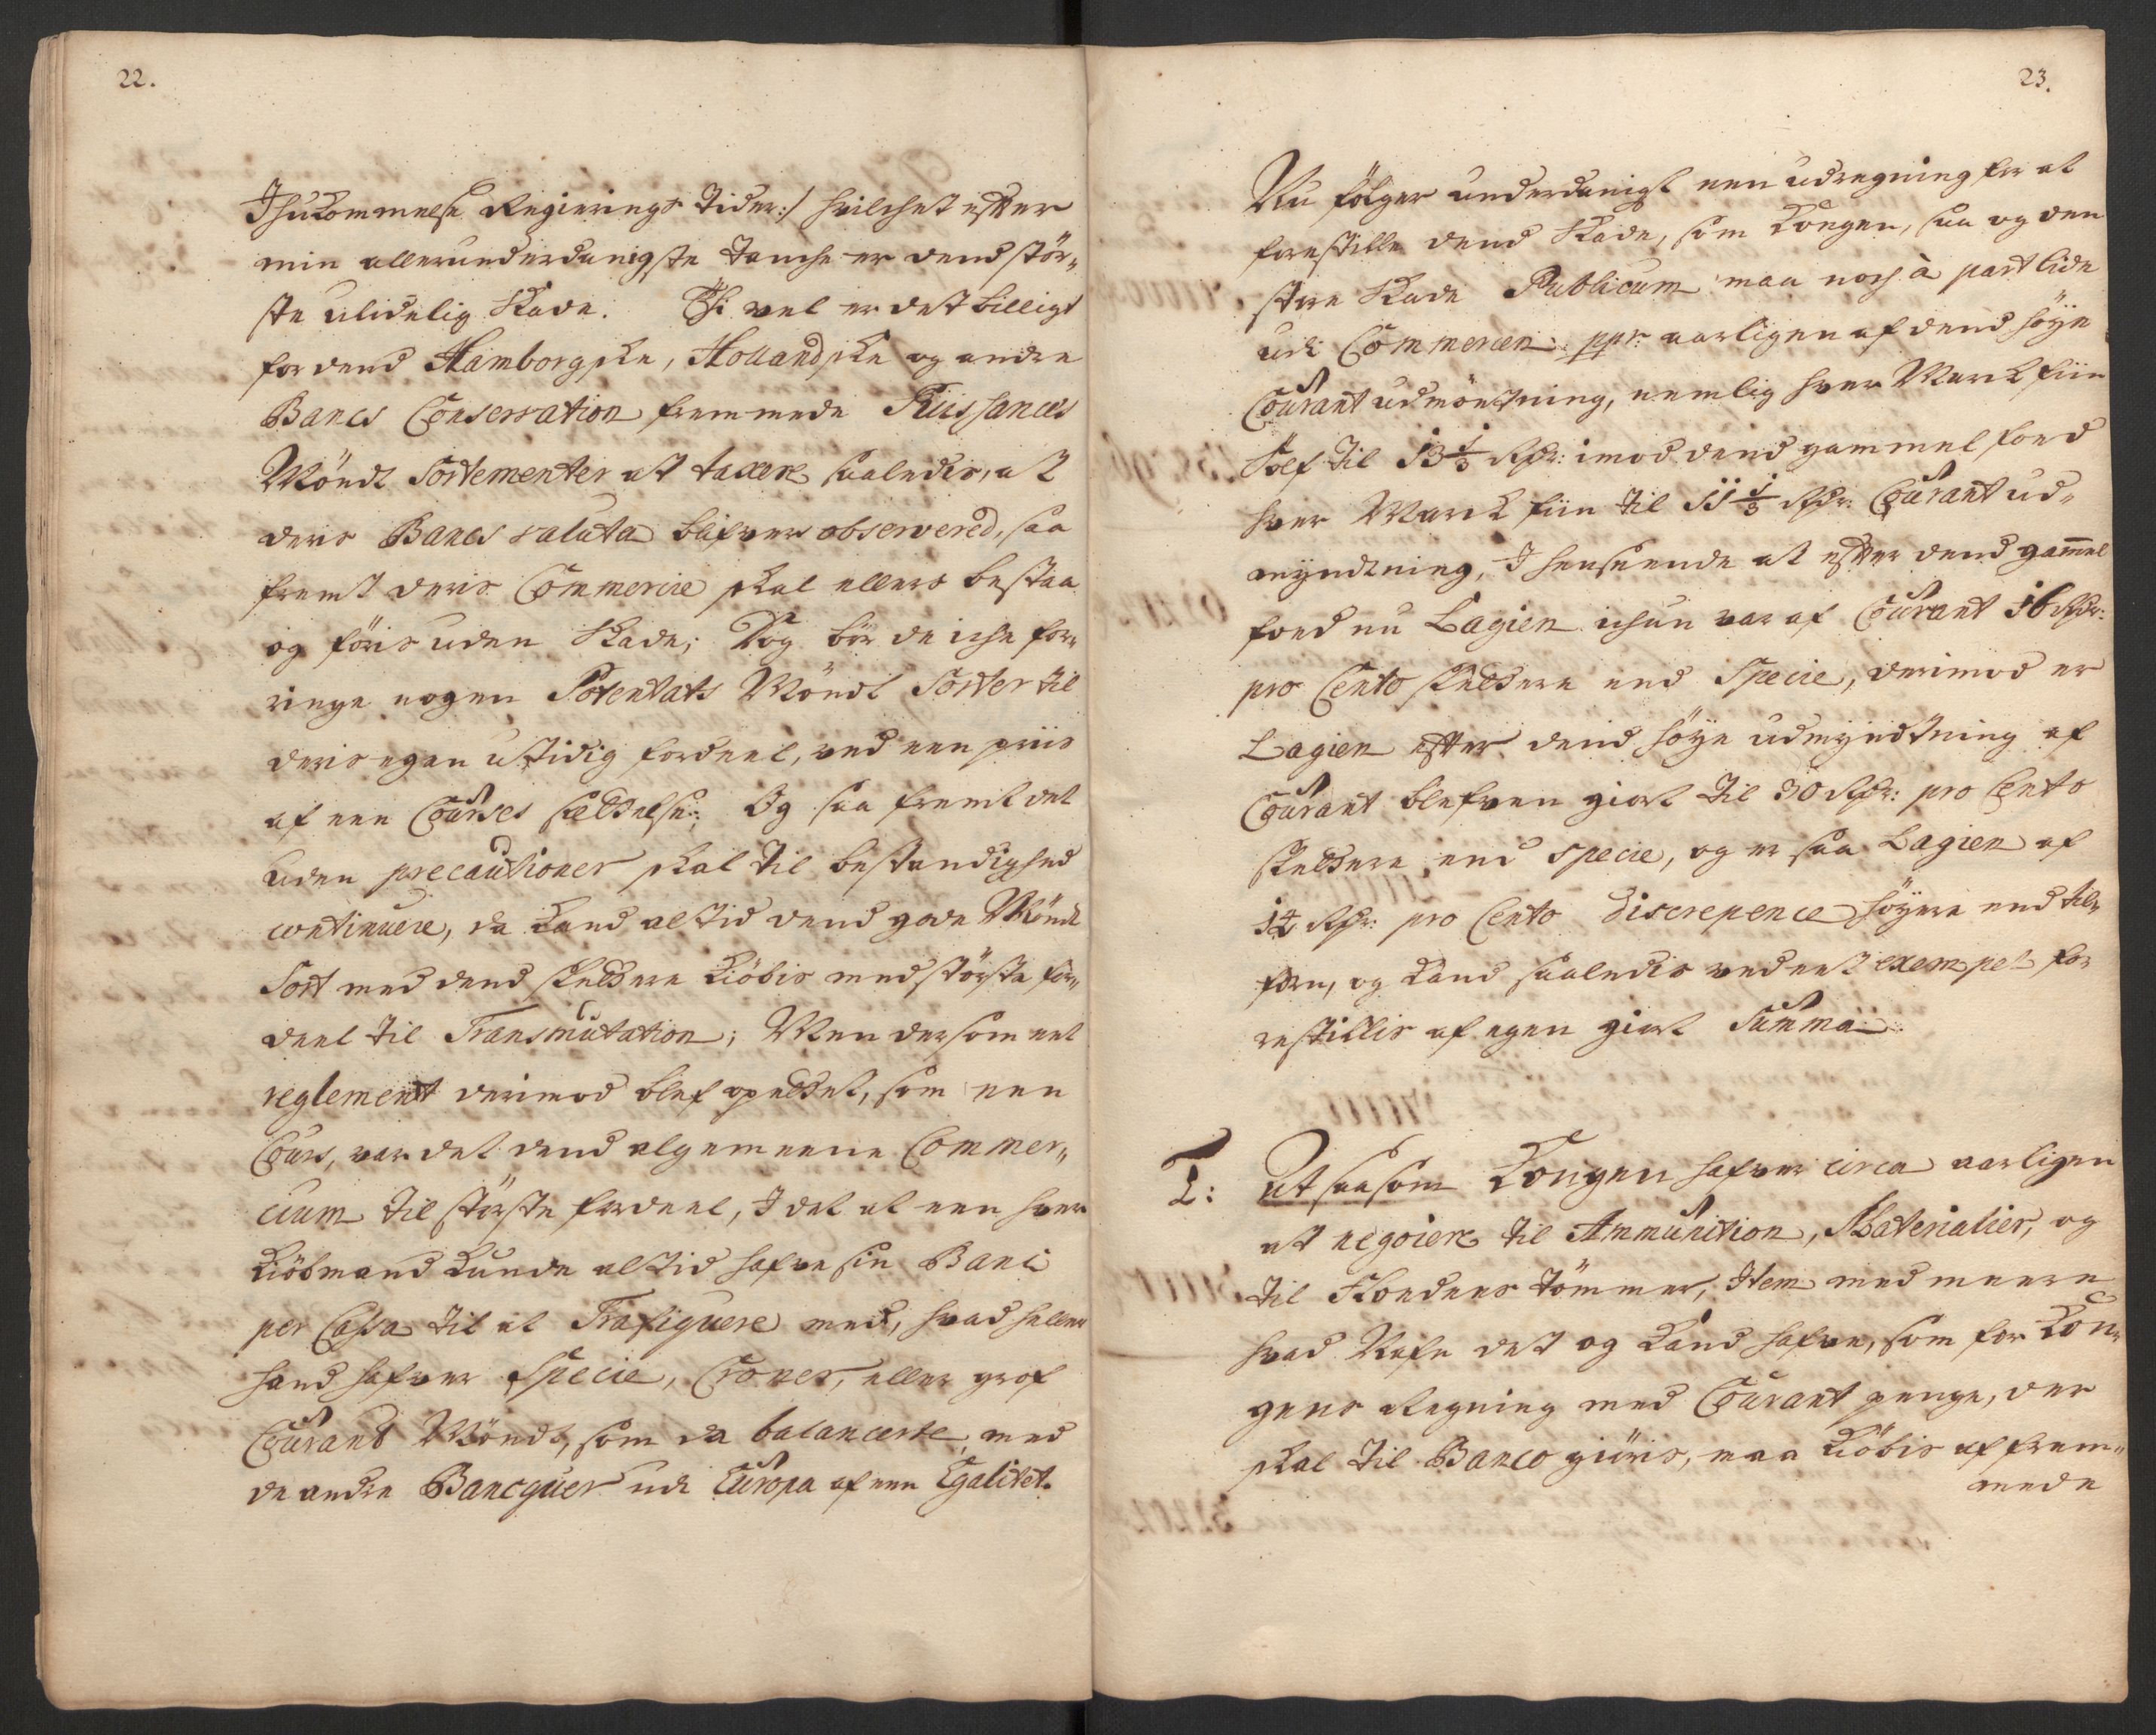 22.
Ihukommelse Regierings Tider:/ hvilchet efter
min allerunderdanigste Tanche er dend stör„
ste ulidelig Skade. Thi vel er det billigt
for dend Hamborgske, Hollandske og andre
Bancs Conservation fremmede Puissances
Möndt Sortementer at taxere saaledis, at
deris Bancs valuta blifver observered, saa
fremt deris Commercie skal ellers bestaa
og föris uden Skade; Dog bör de iche for„
ringe nogen Potentats Möndt Sorter til
deris egen utidig fordeel, ved een priis
af een Courses settelse; Og saa fremt det
uden precautioner skal til bestandighed
continuere, da kand altid dend gode Möndt
Sort med dend slettere kiöbis med störste for„
deel til Transmutation; Men dersom eet
reglement derimod blef opsettet, som een
Cours, var det dend algemeene Commer„
cium til störste fordeel, I det at een hver
Kiöbmand kunde altid hafve sin Banc
per Cassa til at Trafiquere med, hvad heller
hand hafver Specie, Croner, eller grof
Courant Möndt, som da balancerte med
de andre Bancquer udi Europa af een Egalitet.
23.
Nu fölger underdanigst een udregning for at
forestille dend Skade, som Kongen, saa og den
store Skade Publicum maa noch à part lide
udi Commercien ppr: aarligen af dend höye
Courant udmöntning, nemlig hver Marck fiin
Sölf til 13 1/3 Rdr: imod dend gammel foed
hver Marck fiin til 11 1/3 Rdr: Courant ud„
myndtning, I henseende at efter dend gammel
foed nu Lagien ichun var af Courant 16 Rdr:
pro Cento slettere end Specie, derimod er
Lagien efter dend höye udmyndtning af
Courant blefven giort til 30 Rdr: pro Cento
slettere end specie, og er saa Lagien af
14 Rdr: pro Cento discrepence höyere end til„
forn, og kand saaledis ved eet exempel fo„
restillis af egen giort Summa:
I: At saasom Kongen hafver circa aarligen
at negoiere til Ammunition, Materialier, og
til Flodens Tömmer, Item med meere
hvad Nafn det og kand hafve, som for Kon„
gens Regning med Courant penge, der
skal til Banco giöris, maa kiöbis af frem„
mede